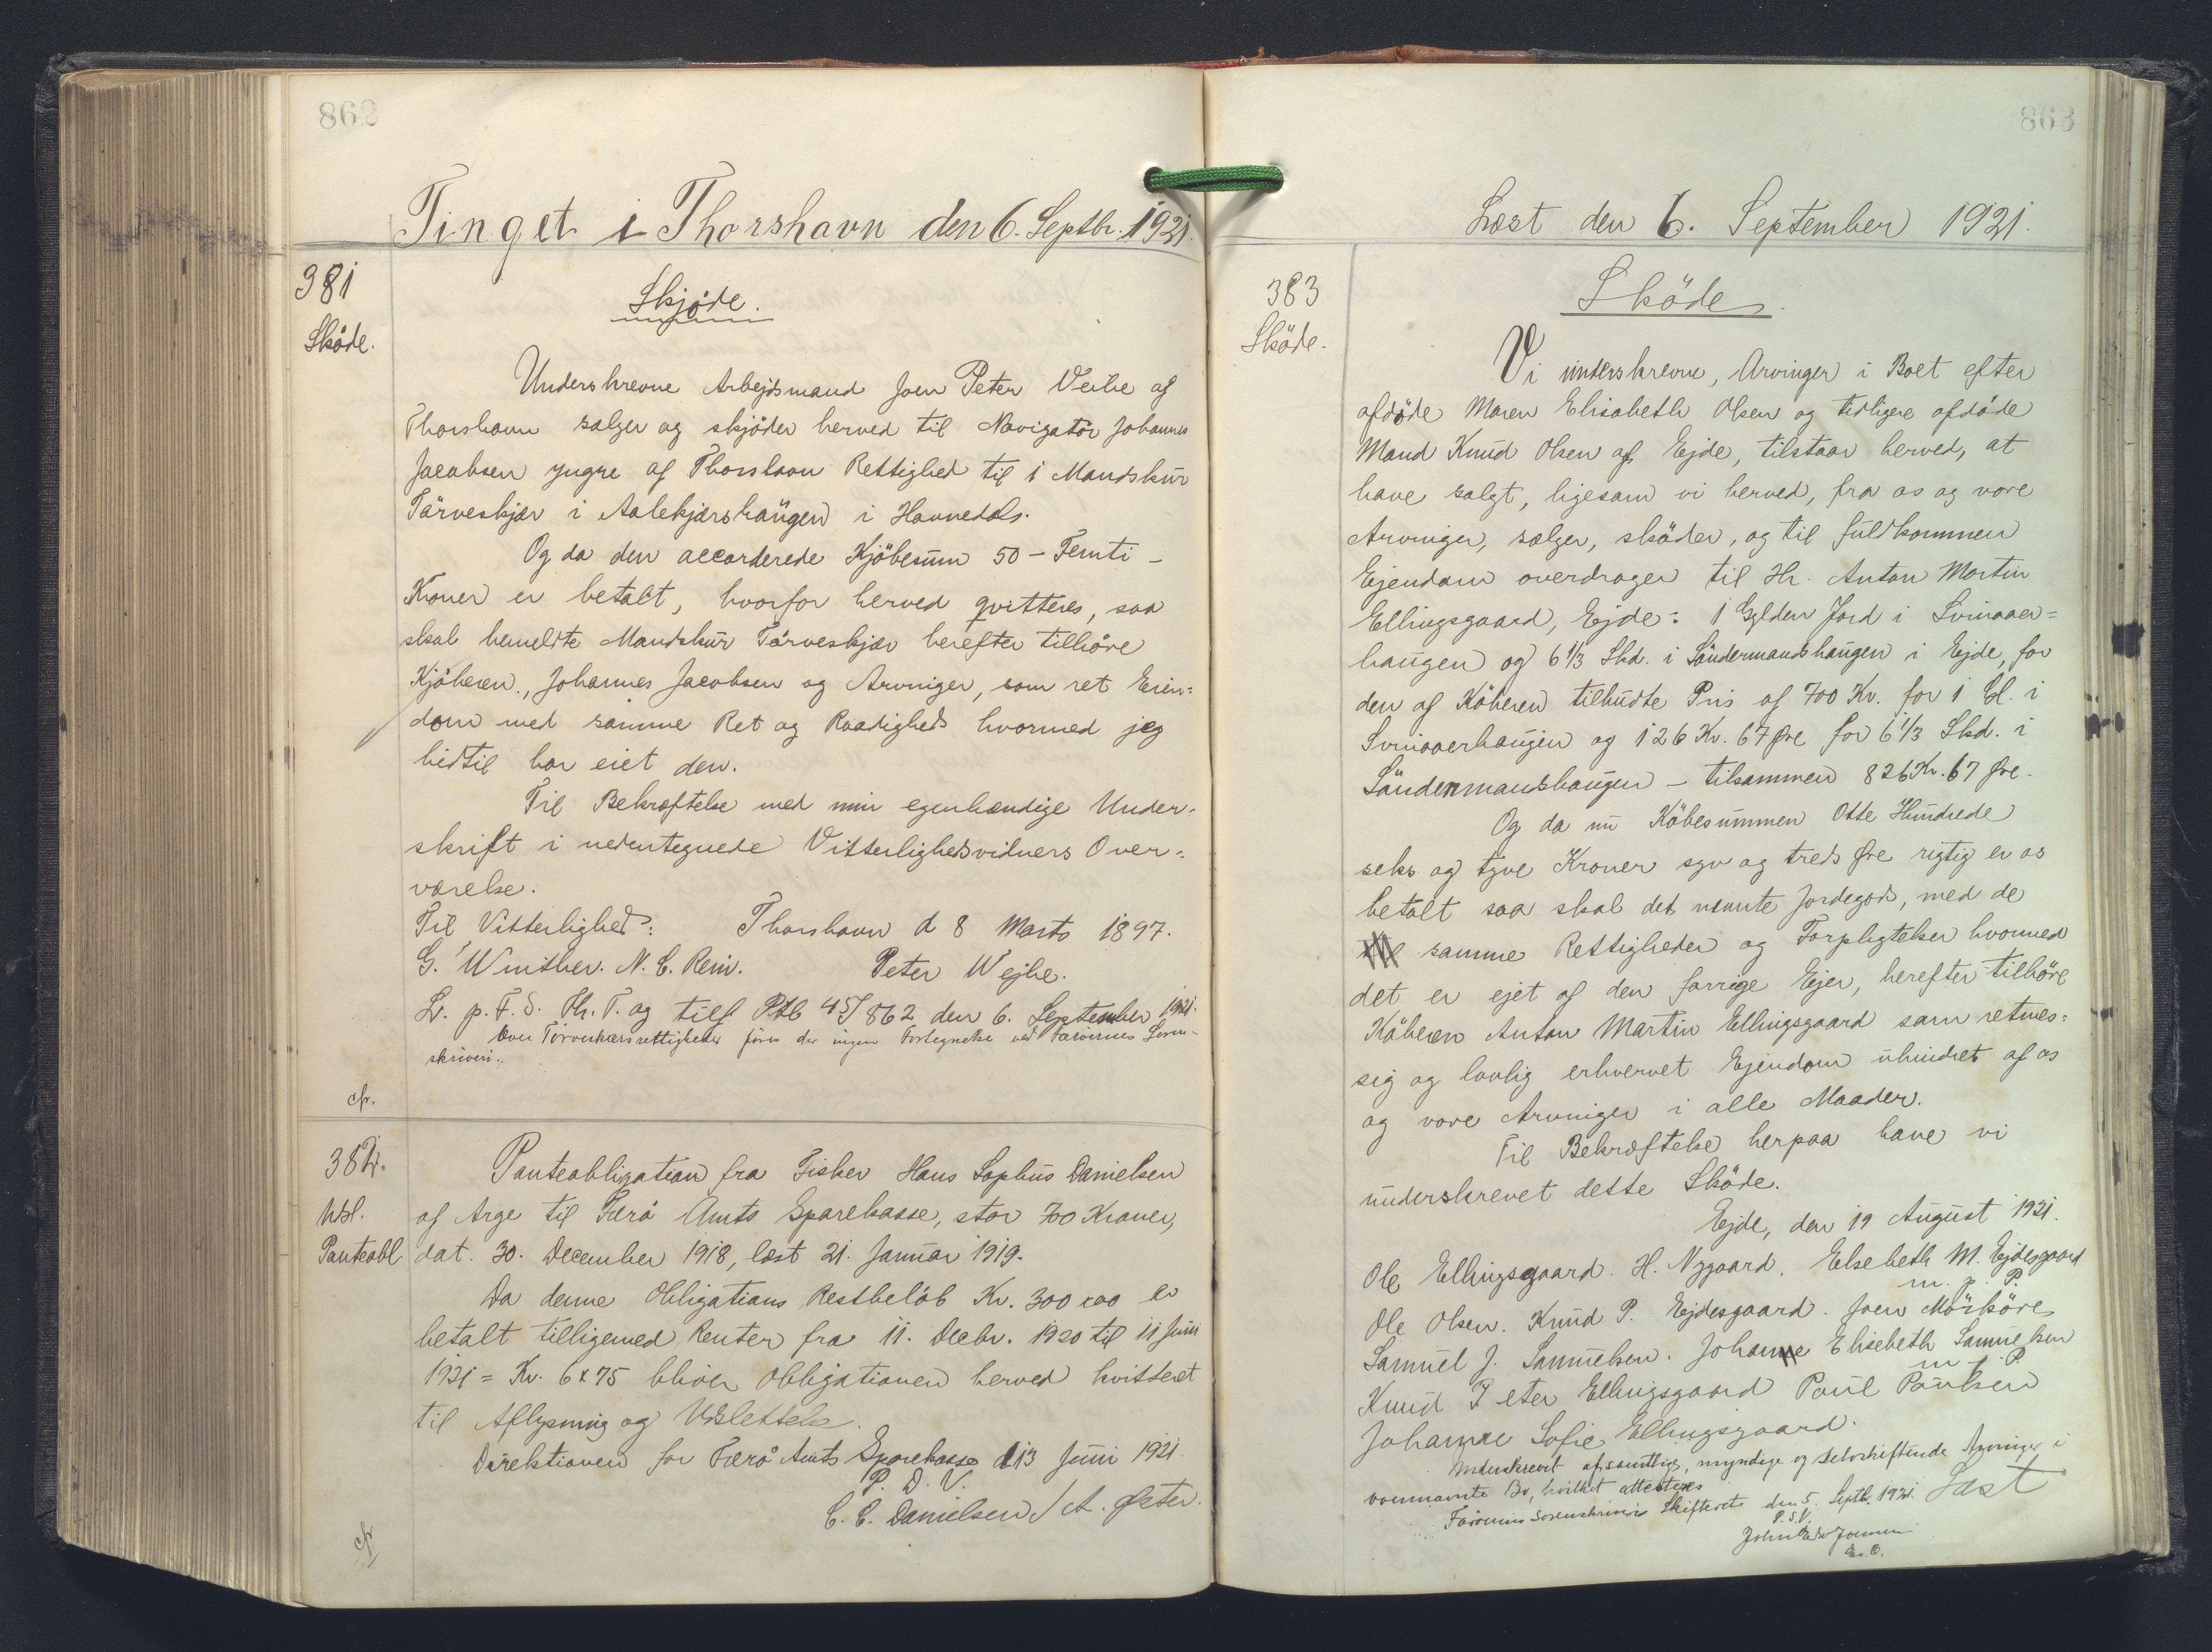 862
Tinget i Thorshavn den 6. Septbr. 1921.
381
Sköde.
Skjøde.
Underskrevne Arbejdsmand Joen Peter Veihe af
Thorshavn sælger og skjöder herved til Navigatör Johannes
Jacobsen yngre af Thorshavn Rettighed til 1 Mandskur
Törveskjær i Aalekjærshaugen i Havnedals.
Og da den accorderede Kjöbesum 50 – Femti –
Kroner er betalt, hvorfor herved qvitteres, saa
skal bemeldte Mandskur Törveskjær herefter tilhöre
Kjöberen, Johannes Jacobsen og Arvinger, som ret Eien=
dom med samme Ret og Raadighed hvormed jeg
hidtil har eiet den.
Til Bekræftelse med min egenhændige Under=
skrift i nedentegnede Vitterlighedsvidners Over=
værelse.
Til Vitterlighed: Thorshavn d 8 Marts 1897.
G. Winther. N. C. Rein. Peter Wejhe.
L. p. F. S. Th. T. og tilf Ptb 45/862 den 6. September 1921.
Over Törveskærsrettigheder föres der ingen Fortegnelse ved Færöernes Soren-
skriveri.
cfr.
382.
Udsl.
Panteobl
Panteobligation fra Fisker Hans Sophus Danielsen
af Arge til Færö Amts Sparekasse, stor 700 Kroner,
dat. 30. December 1918, læst 21. Januar 1919.
Da denne Obligations Restbelöb Kr. 300 x 00 er
betalt tilligemed Renter fra 11. Decbr. 1920 til 11 Juni
1921 = Kr. 6 x 75 bliver Obligationen herved kvitteret
til Aflysning og Udslettelse.
Direktionen for Færö Amts Sparekasse d 13 Juni 1921.
P. D. V.
C. C. Danielsen / A. Øster.
cfr
863
Læst den 6. September 1921.
383
Sköde.
Sköde.
Vi underskrevne, Arvinger i Boet efter
afdöde Maren Elisabeth Olsen og tidligere afdöde
Mand Knud Olsen af Ejde, tilstaar herved, at
have solgt, ligesom vi herved, fra os og vore
Arvinger, sælger, sköder, og til fuldkommen
Ejendom overdrager til Hr. Anton Martin
Ellingsgaard, Ejde: 1 Gylden Jord i Svinaaer=
haugen og 6 1/3 Skd. i Söndermandshaugen i Ejde, for
den af Köberen tilbudte Pris af 700 Kr. for 1 Gl. i
Svinaaerhaugen og 126 Kr. 67 Øre for 6 1/3 Skd. i
Söndenmandshaugen – tilsammen 826 Kr. 67 Øre.
Og da nu Köbesummen Otte Hundrede
seks og tyve Kroner syv og treds Øre rigtig er os
betalt saa skal det nævnte Jordegods, med de
samme Rettigheder og Forpligtelser hvormed
det er ejet af den forrige Ejer, herefter tilhöre
Köberen Anton Martin Ellingsgaard som retmes=
sig og lovlig erhvervet Ejendom uhindret af os
og vore Arvinger i alle Maader.
Til Bekræftelse herpaa have vi
underskrevet dette Sköde.
Ejde, den 19 August 1921.
Ole Ellingsgaard. H. Nygaard. Elsebeth M. Ejdesgaard
m. p. P.
Ole Olsen. Knud P. Ejdesgaard. Joen Mörköre
Samuel J. Samuelsen. Johanne Elisebeth Samuelsen
m. p. P.
Knud Peter Ellingsgaard Poul Poulsen
Johanne Sofie Ellingsgaard.
Underskrevet af samtlige, myndige og selvskiftende Arvinger i
ovennævnte Bo, hvilket attesteres
Færöernes Sorenskriveris Skifteret den 5. Septb. 1921. Læst
P. S. V.